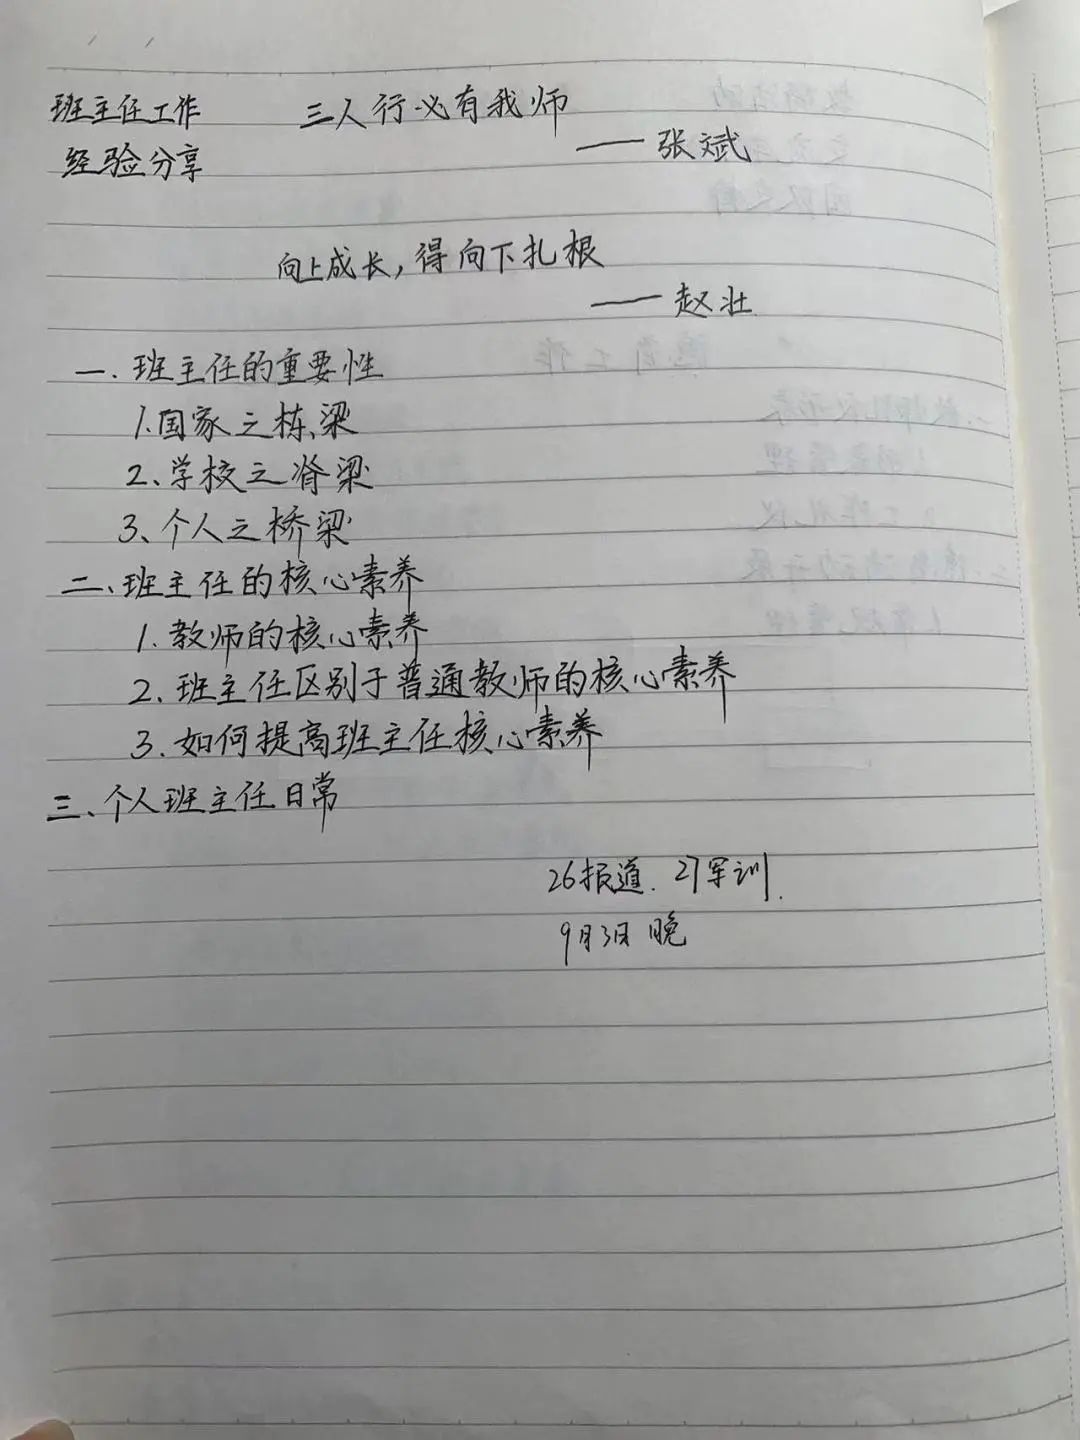 班主任工作 三人行必有我师
经验分享 ——张斌
向上成长,得向下扎根
——赵壮
一.班主任的重要性
1.国家之栋梁
2、学校之脊梁
3、个人之桥梁
二、班主任的核心素养
1.教师的核心素养
2.班主任区别于普通教师的核心素养
3.如何提高班主任核心素养
三、个人班主任日常
26报道.27军训.
9月3日 晚